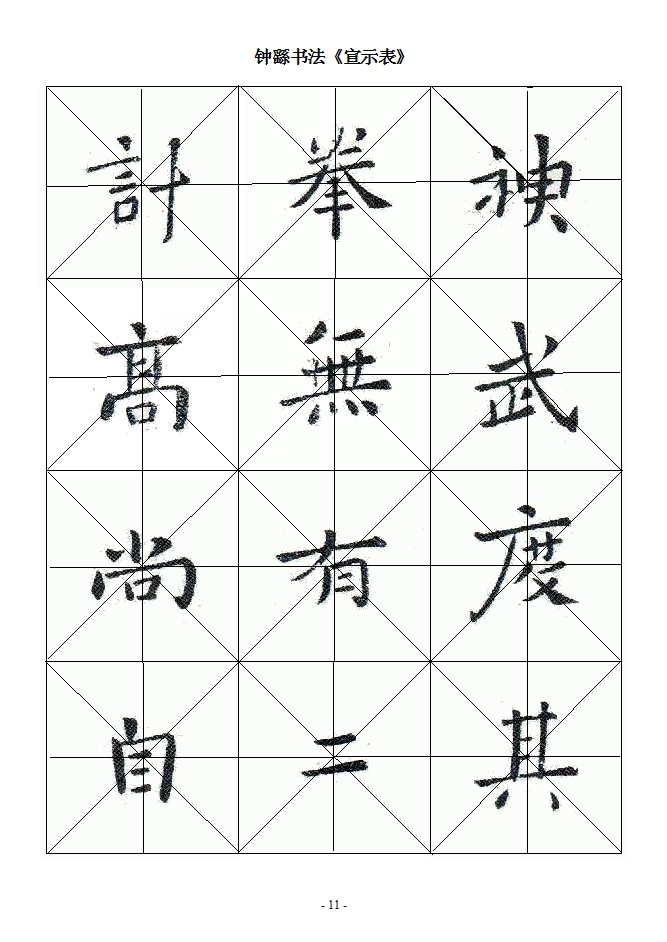 钟繇书法《宣示表》
神武度其
拳無有二
計高尚自
- 11 -